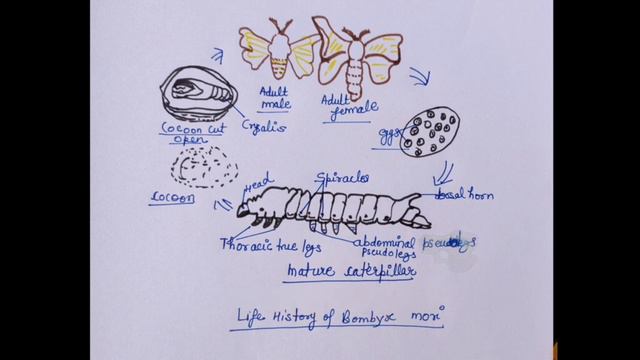 Adult
male
Adult
female
Cocoon cut
open
Crysalis
ggs
Cocoon
Head
Spiracles
dorsal horn
Thoracic true legs
abdominal pseudolegs
pseudolegs
mature caterpillar
Life History of Bombyx mori